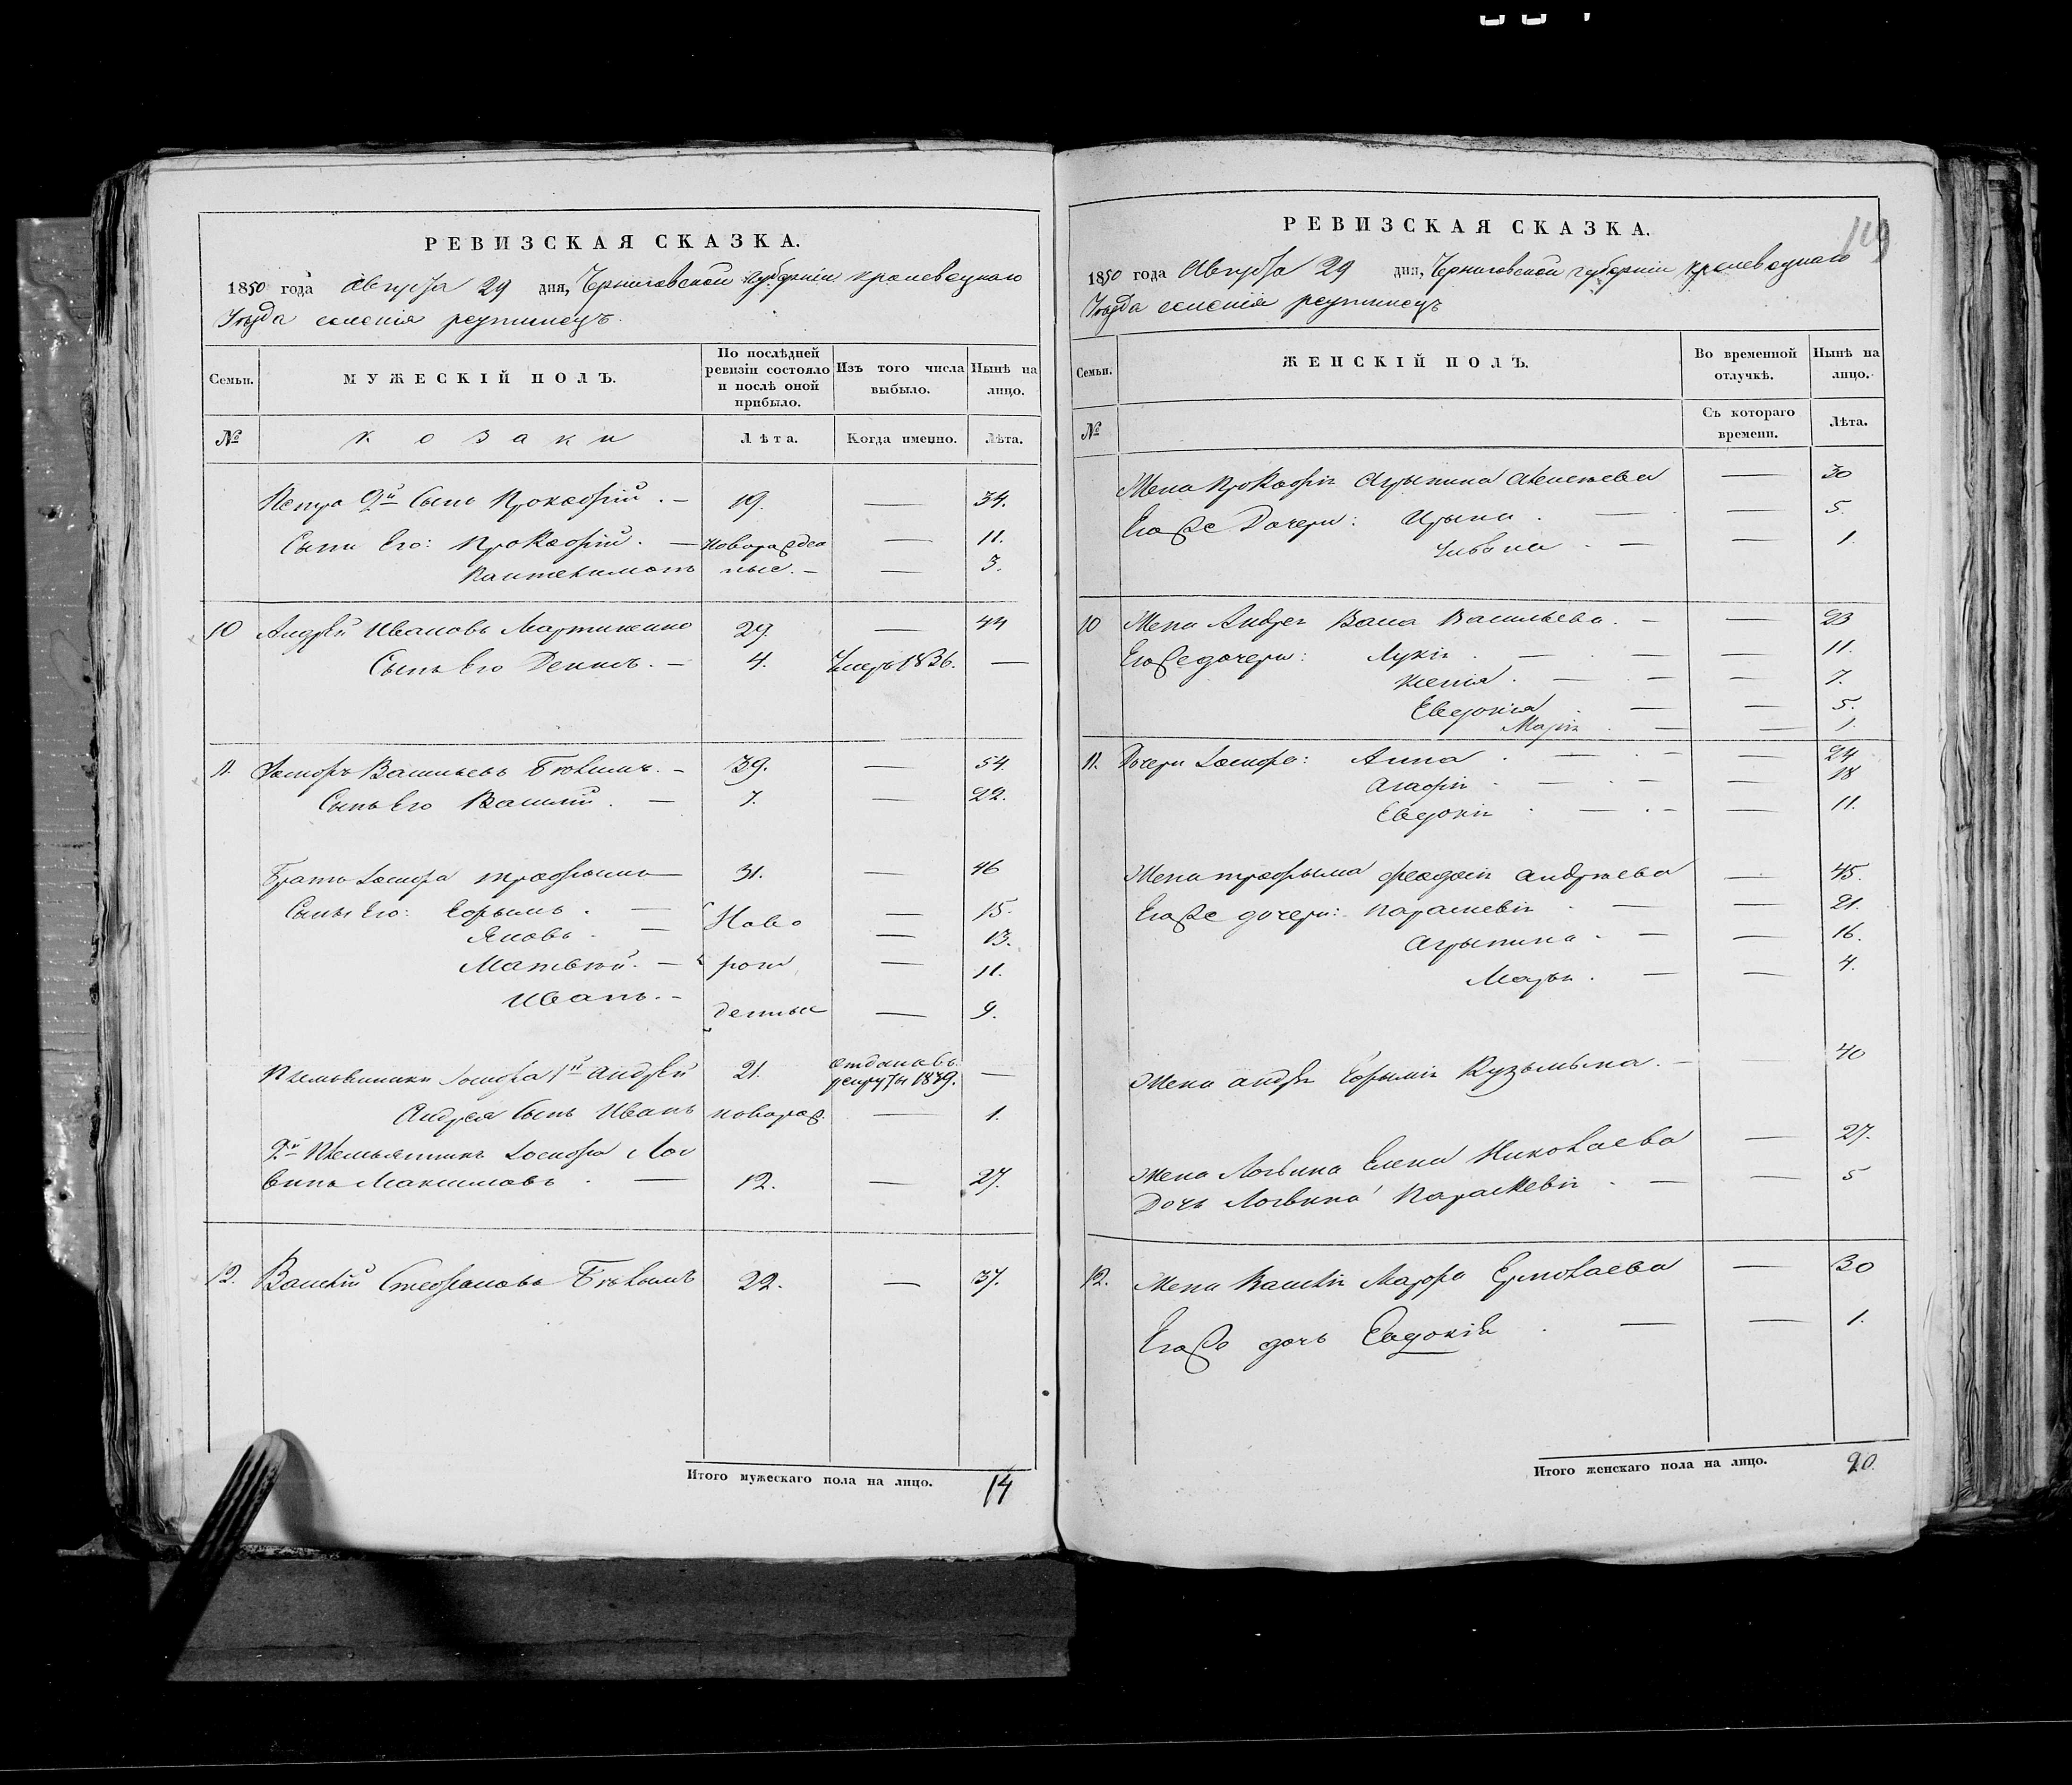 РЕВИЗСКАЯ СКАЗКА.
1850 года Августа 29 дня, Черниговской губерніи кролевецкаго
Уезда селенія реутинецъ.
Семьи.
МУЖЕСКІЙ ПОЛЪ.
По послѣдней ревизіи состояло и послѣ оной прибыло.
Изъ того числа выбыло.
Нынѣ на лицо.
№
козаки
Лѣта.
Когда именно.
Лѣта.
Петра 2й Сынъ Прокофій. — 19. — 34.
Сыны Его: Прокофій. — Новорожден — 11.
Пантелимонъ ные. — — 3.
10 Андрей Ивановъ Мартиненко 29. — 44
Сынъ Его Денисъ. — 4. Умеръ 1836. —
11. Васильевъ — 39. — 54.
Сынъ Его Василій. — 7. — 22.
Братъ Трофымъ — 31. — 46
Сыны Его: Ефымъ. — Ново — 15.
Яковъ. — — 13.
Матвѣй. — рож — 11.
Иванъ. — денные — 9.
Племянники 1й Андрей 21. отданъ въ рекруты 1839. —
Андрея Сынъ Иванъ новорож. — 1.
2й Племянникъ Лог
винъ Максимовъ. — 12. — 27.
12. Василій Стефановъ 22. — 37.
Итого мужескаго пола на лицо. 14
РЕВИЗСКАЯ СКАЗКА.
119
1850 года Августа 29 дня, Черниговской губерніи кролевецкаго
Уезда селенія реутинецъ
Семьи.
ЖЕНСКІЙ ПОЛЪ.
Во временной отлучкѣ.
Нынѣ на лицо.
№
Съ котораго времени.
Лѣта.
Жена Прокофія Агрыпина Алексѣева — 30
Его же Дочери: Ирына. — — 5.
Ульяна. — — 1.
10 Жена Андрея Васса Васильева. — — 23
Его же дочери: Лукія. — — 11.
Ксенія. — — 7.
Евдокія — — 5.
Марія. — — 1.
11. Дочери Анна. — — 24
Агафія. — — 18
Евдокія. — — 11.
Жена Трофыма Феодосія Андреева — 45.
Его же дочери: Параскевія. — — 21.
Агрыпина. — — 16.
Марья. — — 4.
Жена Андрея Ефымія Кузьмына. — — 40
Жена Логвина Елена Николаева — 27.
Дочь Логвина Параскевія. — — 5
12. Жена Василія Марфа Ермолаева — 30
Его же дочь Евдокія. — — 1.
Итого женскаго пола на лицо. 20.